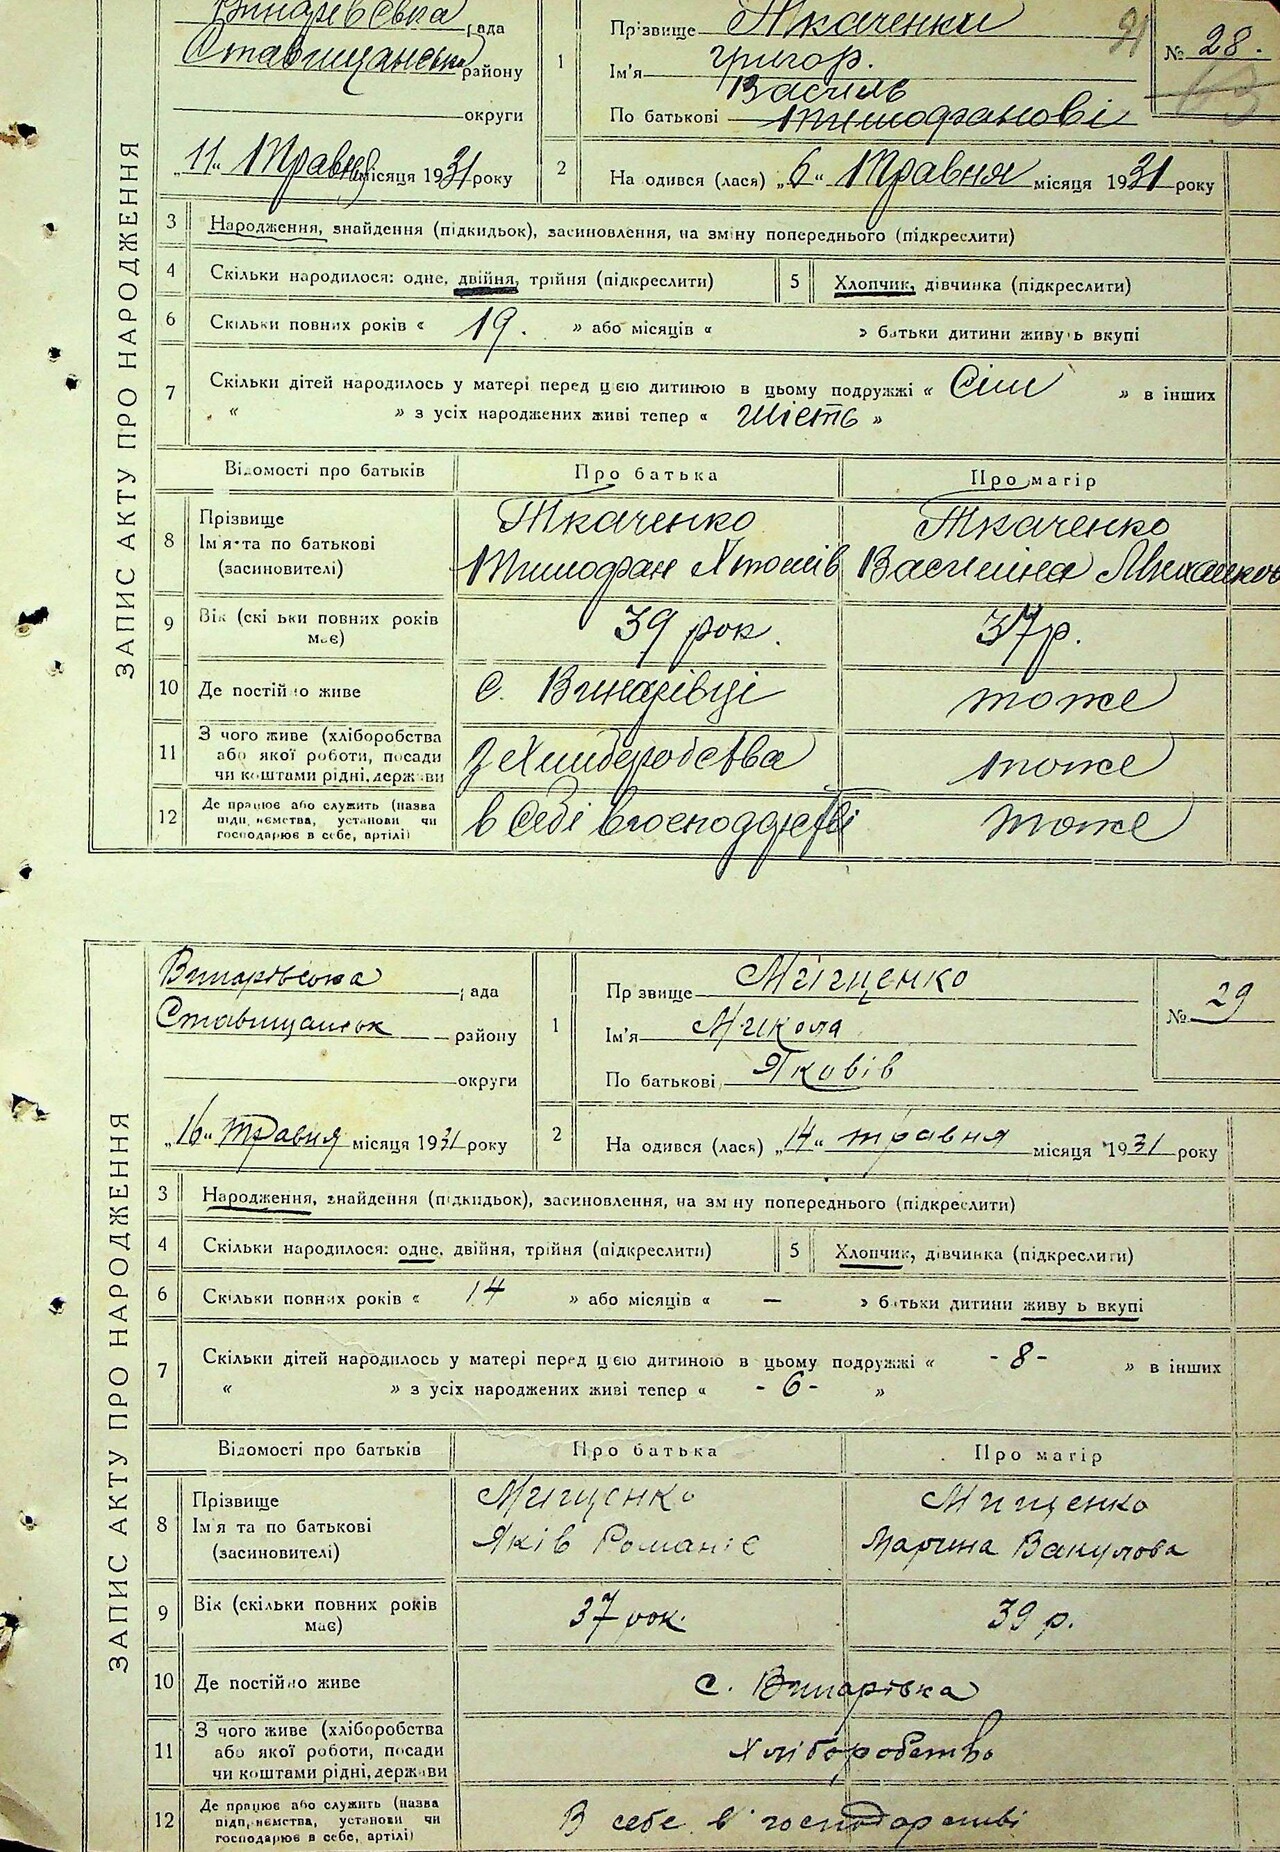 рада
Ставищанськ району
округи
„11" Травня місяця 1931 року
1
Прізвище Ткаченки
Ім'я Григор.
Василь
По батькові Тимофанові
№ 28.
2
На одився (лася) „6" Травня місяця 1931 року
ЗАПИС АКТУ ПРО НАРОДЖЕННЯ
3 Народження, знайдення (підкидьок), засиновлення, на зміну попереднього (підкреслити)
4 Скільки народилося: одне, двійня, трійня (підкреслити)
5 Хлопчик, дівчинка (підкреслити)
6 Скільки повних років « 19. » або місяців « » батьки дитини живу ь вкупі
7 Скільки дітей народилось у матері перед цією дитиною в цьому подружжі « Сім » в інших
« » з усіх народжених живі тепер « шість »
Відомості про батьків Про батька Про матір
8 Прізвище Ткаченко Ткаченко
Ім'я та по батькові Тимофан Василина
(засиновителі)
9 Вік (скільки повних років має) 39 рок. 37 р.
10 Де постійно живе с. Винарівці тоже
11 З чого живе (хліборобства
або якої роботи, посади
чи коштами рідні, держави тоже
12 Де працює або служить (назва
підприємства, установи чи
господарює в себе, артілі) в себі в господарстві тоже
Винарівська рада
Ставищанськ району
округи
„16" травня місяця 1931 року
1
Пр звище Міщенко
Ім'я Микола
По батькові Яковів
№ 29
2
На одився (лася) „14" травня місяця 1931 року
ЗАПИС АКТУ ПРО НАРОДЖЕННЯ
3 Народження, знайдення (підкидьок), засиновлення, на зм ну попереднього (підкреслити)
4 Скільки народилося: одне, двійня, трійня (підкреслити)
5 Хлопчик, дівчинка (підкреслити)
6 Скільки повних років « 14 » або місяців « — » батьки дитини живу ь вкупі
7 Скільки дітей народилось у матері перед цією дитиною в цьому подружжі « - 8 - » в інших
« » з усіх народжених живі тепер « - 6 - »
Відомості про батьків Про батька Про матір
8 Прізвище Міщенко Міщенко
Ім'я та по батькові Яків Романіє Марина Вакулова
(засиновителі)
9 Вік (скільки повних років має) 37 рок. 39 р.
10 Де постійно живе с. Винарівка
11 З чого живе (хліборобства
або якої роботи, посади
чи коштами рідні, держави Хліборобство
12 Де працює або служить (назва
підприємства, установи чи
господарює в себе, артілі) В себе в господарстві